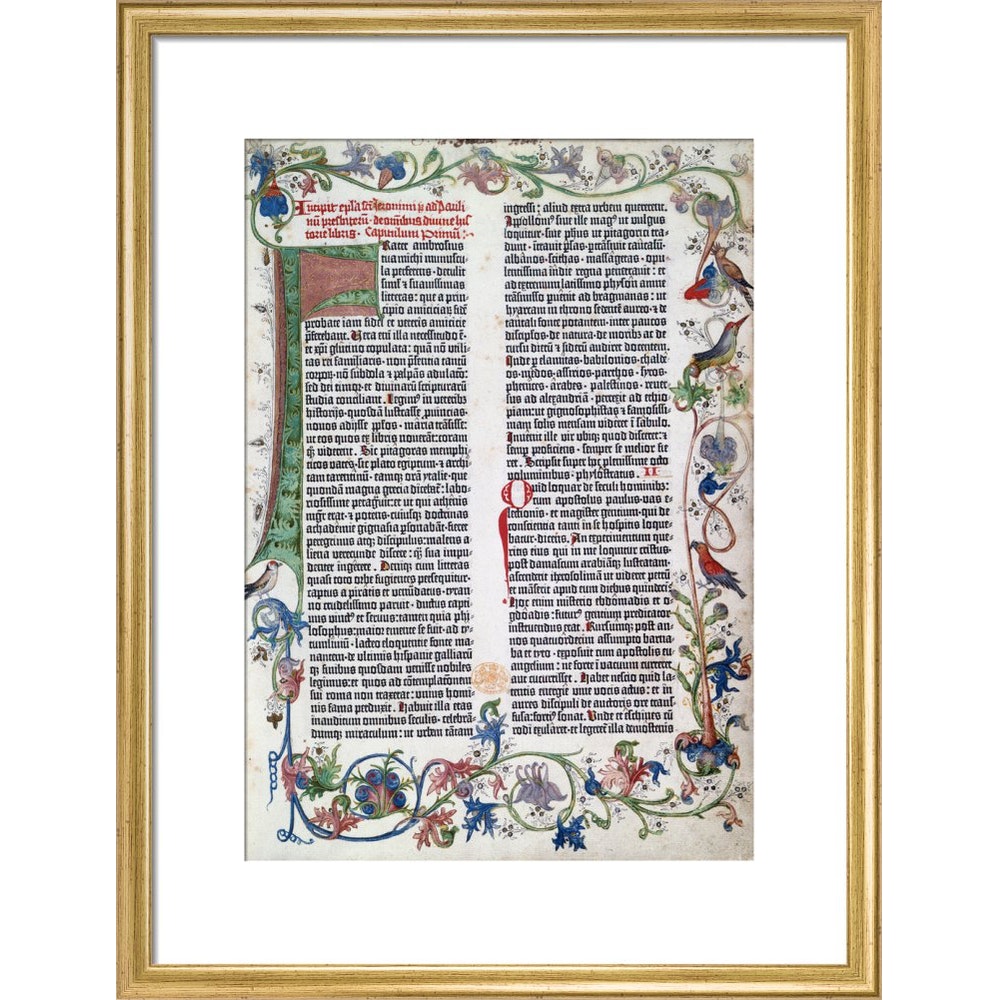 Incipit epla sci Iheronimi p̄ ad Pauli
nū presbiterū · de omnibus divine his
torie libris · Capitulum Primū :
Frater ambrosius
michi munuscu
la perferens · detulit
simul et suavissimas
litteras : que a prin=
cipio amiciciar̄ fidē
probate iam fidei et veteris amicicie
p̄ferebant . Vera eni illa necessitudo ē .
et xp̄i glutino copulata : quā nō utili
tas rei familiaris · nō p̄sentia tantū
corporū · nō subdola et palpās adulatō :
sed dei timor · et divinarū scripturarū
studia conciliant . Legimꝰ in veteribꝰ
historijs · quosdā lustrasse puincias ·
novos adijsse pp̄los · maria trāsisse :
ut eos quos ex libris noverāt : coram
qꝫ viderent . Sic pitagoras memphi
ticos vates · sic plato egiptum · et archi
tam tarentinum · eamqꝫ orā ytalie · que
quondā magna grecia dicebat̄ : labo
riosissime peragravit : et ut qui athenis
mgr̄ erat · et potens · cuiusqꝫ doctrinas
achademie gignasia p̄sonabāt · fieret
peregrinus atqꝫ discipulus : malens a
liena verecunde discere : qꝫ sua impu
denter ingērere . Deniqꝫ cum litteras
quasi toto orbe fugientes persequit̄ur ·
captus a piratis et venūdatus · tyran
no crudelissimo paruit · ductus capti
mus vinctꝰ et servus : tamen quia phi
losophus : maior emente se fuit · ad ty=
tumlivium · lacteo eloquentie fonte ma=
nantem · de ultimis hispanie galliarū
qꝫ finibus quosdam venisse nobiles
legimus : et quos ad cōtemplacōnem
sui roma non traxerat : unius homi
nis fama perduxit . Habuit illa etas
inauditum omnibus seculis · celebrā
dumqꝫ miraculum : ut urbem tātam
ingressi : aliud extra urbem quererent .
Appollonꝰ sive ille magꝰ ut vulgus
loquitur · sive ph̄us ut pitagorici tra
dunt · intravit p̄sas · ptrāsivit caucasū
albanos · scithas · massagetas · opu
lentissima indie regna penetravit : et
ad extremum latissimo physon amne
trāsmisso puenit ad bragmanas : ut
hyarcam in throno sedentē aureo · et de
tantali fonte potantem · inter paucos
discipl̄os · de natura · de moribꝰ ac de
cursu dierū et siderū audiret docentem .
Inde p elamitas · babilonios · chalde
os · medos · assirios · parthos · syros ·
phenices · arabes · palestinos · rever
sus ad alexandriā · perrexit ad ethio
piam : ut gignosophistas et famosissi
mam solis mensam videret ī sabulo .
Invenit ille vir ubiqꝫ quod disceret : et
semp proficiens · semper se melior fie
ret . Scripsit super hoc plenissime octo
voluminibus · phylostratus . II
Quid loquar de seculi hominibꝰ :
cum apostolus paulus · vas e
lectionis · et magister gentium · qui de
conscientia tanti in se hospitis loque
batur · dicens . An experimentum que
ritis eius qui in me loquitur cristus ·
post damascum arabiāqꝫ lustratam ·
ascenderit iherosolimā ut videret petrū
et māserit apud eum diebus quindecī
Hoc enim misterio ebdomadis et o
gdoadis : futurꝰ gentium predicator
instruendus erat . Rursumqꝫ post an
nos quatuordecim assumpto barna
ba et tyto · exposuit cum apostolis eu
angelium : ne forte ī vacuum curreret
aut cucurrisset . Habet nescio quid la
tentis energie vive vocis actus : et in
aures discipuli de auctoris ore trans
fusa : fortiꝰ sonat . Unde et eschines cū
rodi exularet · et legeret̄ illa demostenis